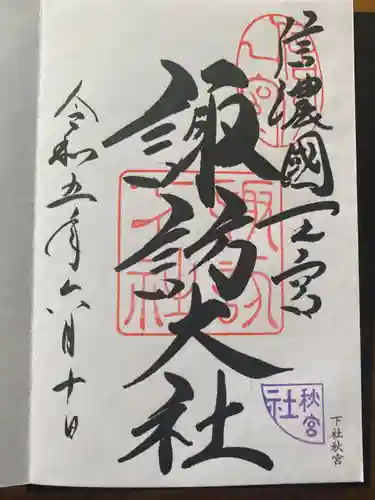 信濃國一之宮
諏訪大社
令和五年六月十日
秋宮
社
下社秋宮